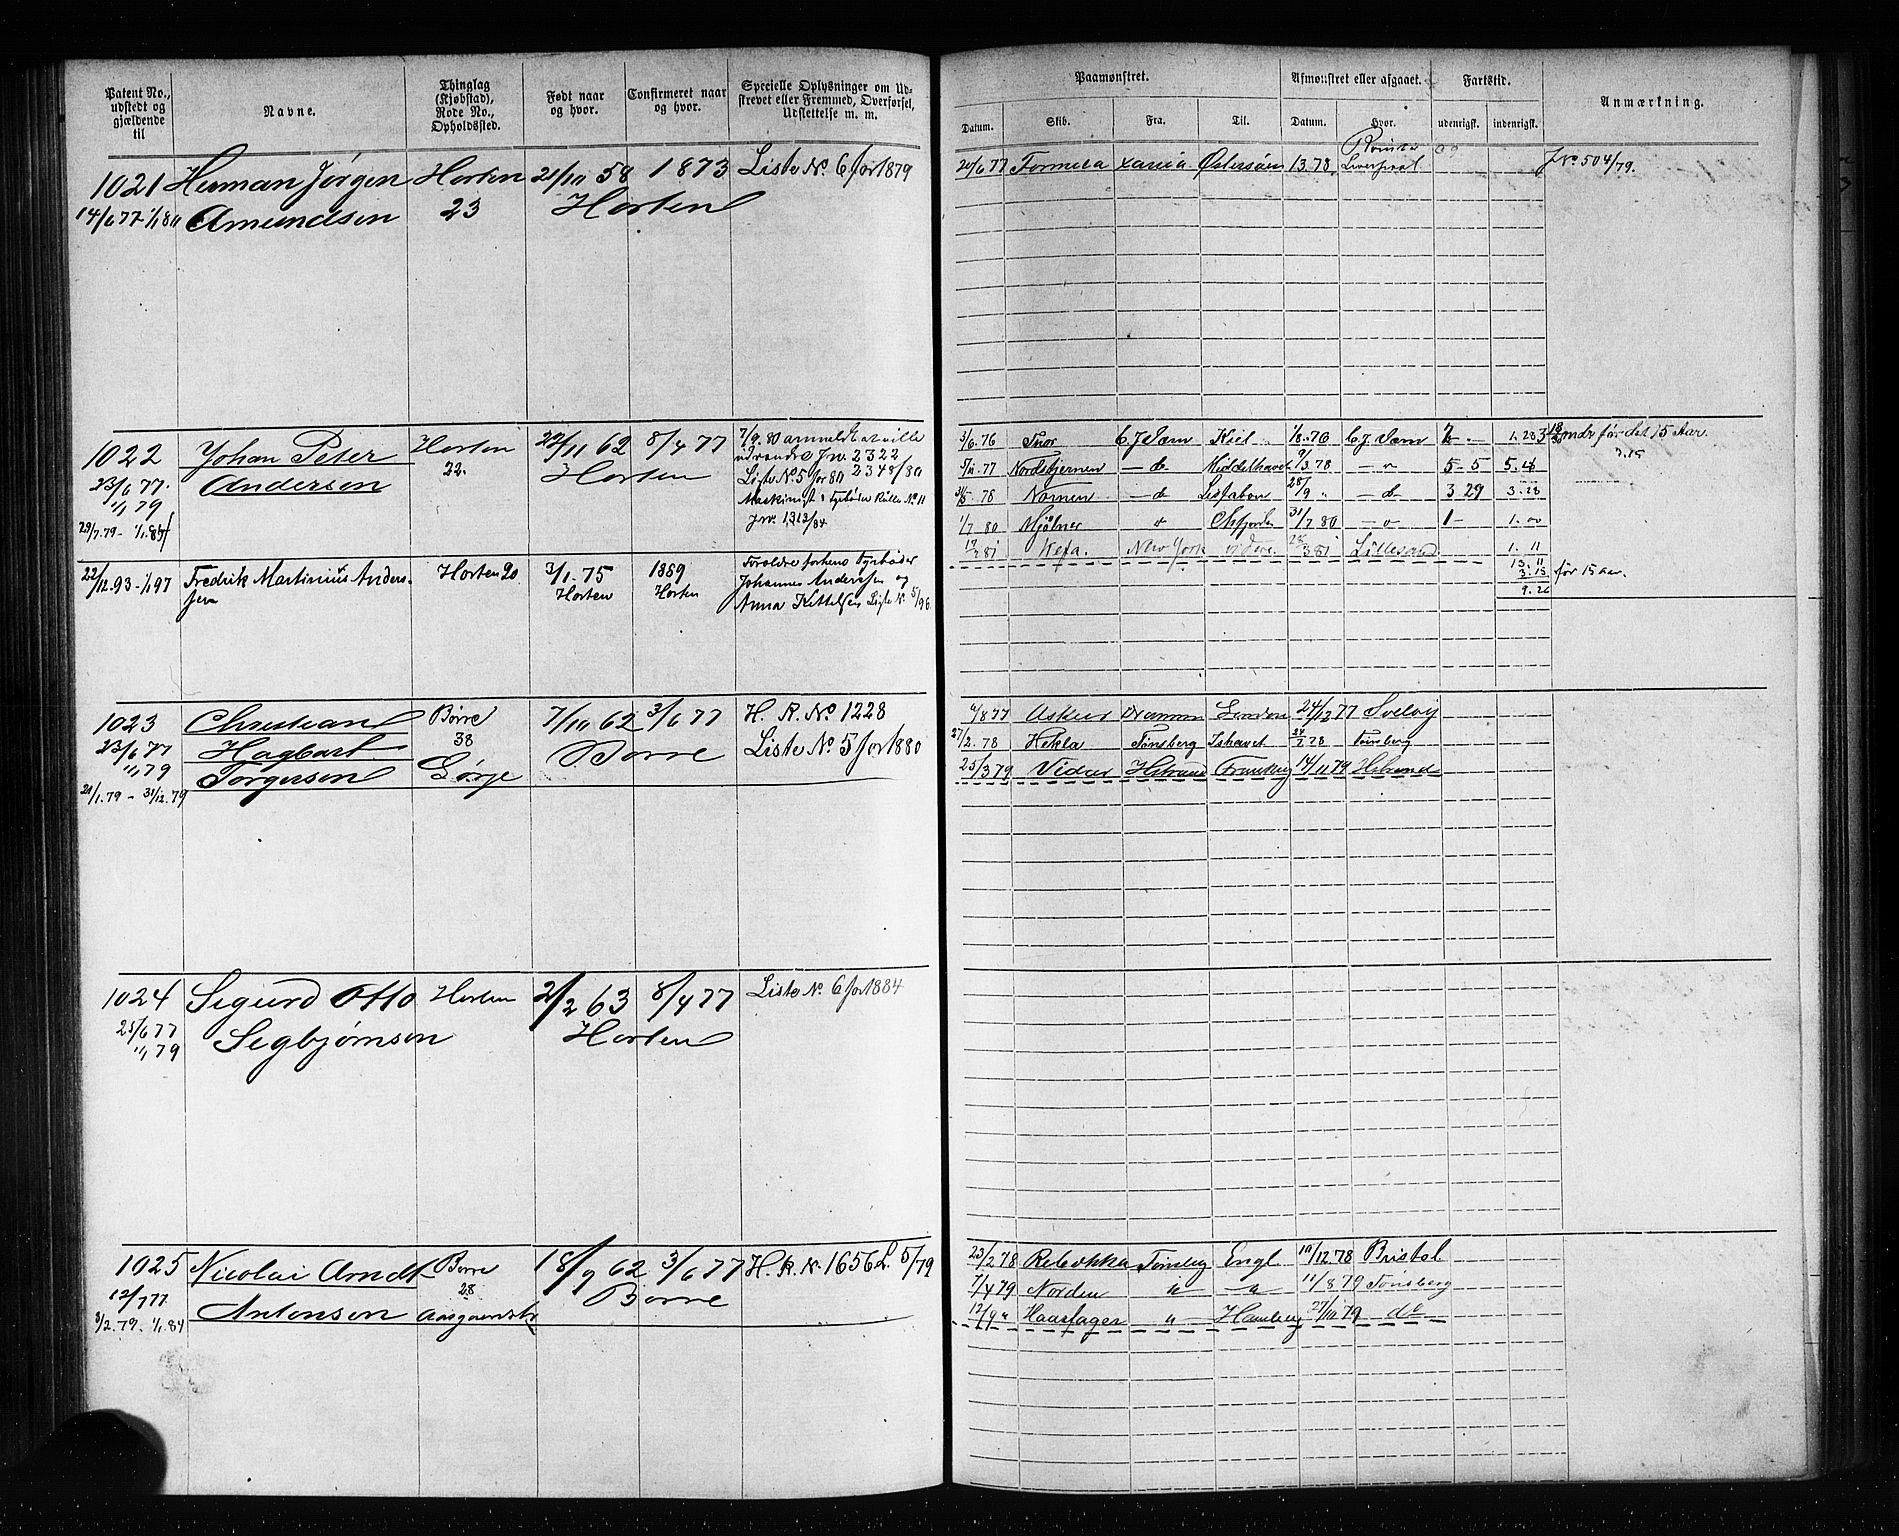 Patent No., udstedt og gjældende til
Navne.
Thinglag (Kjøbstad), Rode No., Opholdssted.
Født naar og hvor.
Confirmeret naar og hvor.
Specielle Oplysninger om Udskrevet eller Fremmed, Overførsel, Udslettelse m. m.
Paamønstret.
Afmønstret eller afgaaet.
Fartstid.
Anmærkning.
Datum. Skib. Fra. Til. Datum. Hvor. udenrigsk. indenrigsk.
1021 Herman Jørgen Horten 21/11 58 1873 Liste No 6 for 1879
14/6 77 1/1 80 Amundsen 23 Horten
20/6 77 Formica Xania Østersøen 13.78 Liverpool J No 504/79.
1022 Johan Peter Horten 22/11 62 8/4 77 7/9.80 anmeldt at ville
23/6 77. Andersen 22. Horten udvandre J No 2322
1/1 79 Liste No 5 for 80 2348/80
29/7.79 - 1/1.85 Maskinist & Fyrbøder Rulle No 11
J No 1313/84
3/6.76 Thor C. J. Sam Kiel 1/8.76 C. J. Sam 2 - 1.28
5/11.77 Nordstjernen - do Middelhavet 9/3.78 5-5
3/5.78 Nornen - do Lissabon 28/9 " - do 3 29 3.28
1/7 80 Mjølner Chfjorden 31/7 80 1- 1.00
17/2 81 Vefa. New York 28/3 81 Lillesand 1. 11
13. 11
3.15 før 15 aar.
9.26
22/12.93-1/1 97 Fredrik Martinius Anders- Horten 90 3/1.75 1889 Foreldre forhens Fyrbøder
sen Horten Horten Johannes Anderssen og
Anna Kettelsen Liste No 5/96.
1023 Christian Børre 7/10 62 3/6 77 H. R. No 1228
23/6 77 Hagbart 38 Borre Liste No 5 for 1880
1/1 79 Torgersen
21/1.79 - 31/12.79
6/8 77 Askur Drammen London 24/12 77 Svelvig
27/2.78 Hekla Tønsberg Ishavet 7.78 Tønsberg
25/3 79 Vidar 14/11 79
1024 Sigurd Otto Horten 2/2 63 8/4 77 Liste No. 6 for 1884
25/6 77 Segbjørnsen Horten
1/1 79
1025 Nicolai Arndt Borre 18/9 62 3/6 77 H. R. No. 1656 L. 5/79
12/7 77 28 Borre
3/2.79 - 1/1.84 Antonsen Aasgaardstr
23/2 78 Rebekka Tønsberg Engl 19/12.78 Bristol
7/4 79 Norden 11/8 79 Tonsberg
12/9 " Haarfager " Hamburg 27/10 79 do